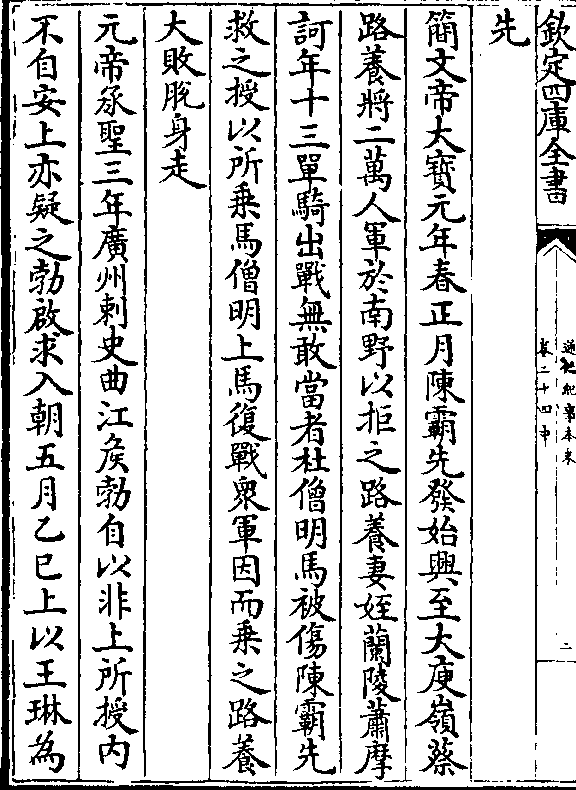 欽定四庫全書
通鑑紀事本末
卷二十四中
二
先
簡文帝大寶元年春正月陳霸先發始興至大庾嶺蔡
路養將二萬人軍於南野以拒之路養妻姪蘭陵蕭摩
訶年十三單騎出戰無敢當者杜僧明馬被傷陳霸先
救之授以所乗馬僧明上馬復戰衆軍因而乗之路養
大敗脫身走
元帝承聖三年廣州刺史曲江侯勃自以非上所授内
不自安上亦疑之勃啟求入朝五月乙巳上以王琳為